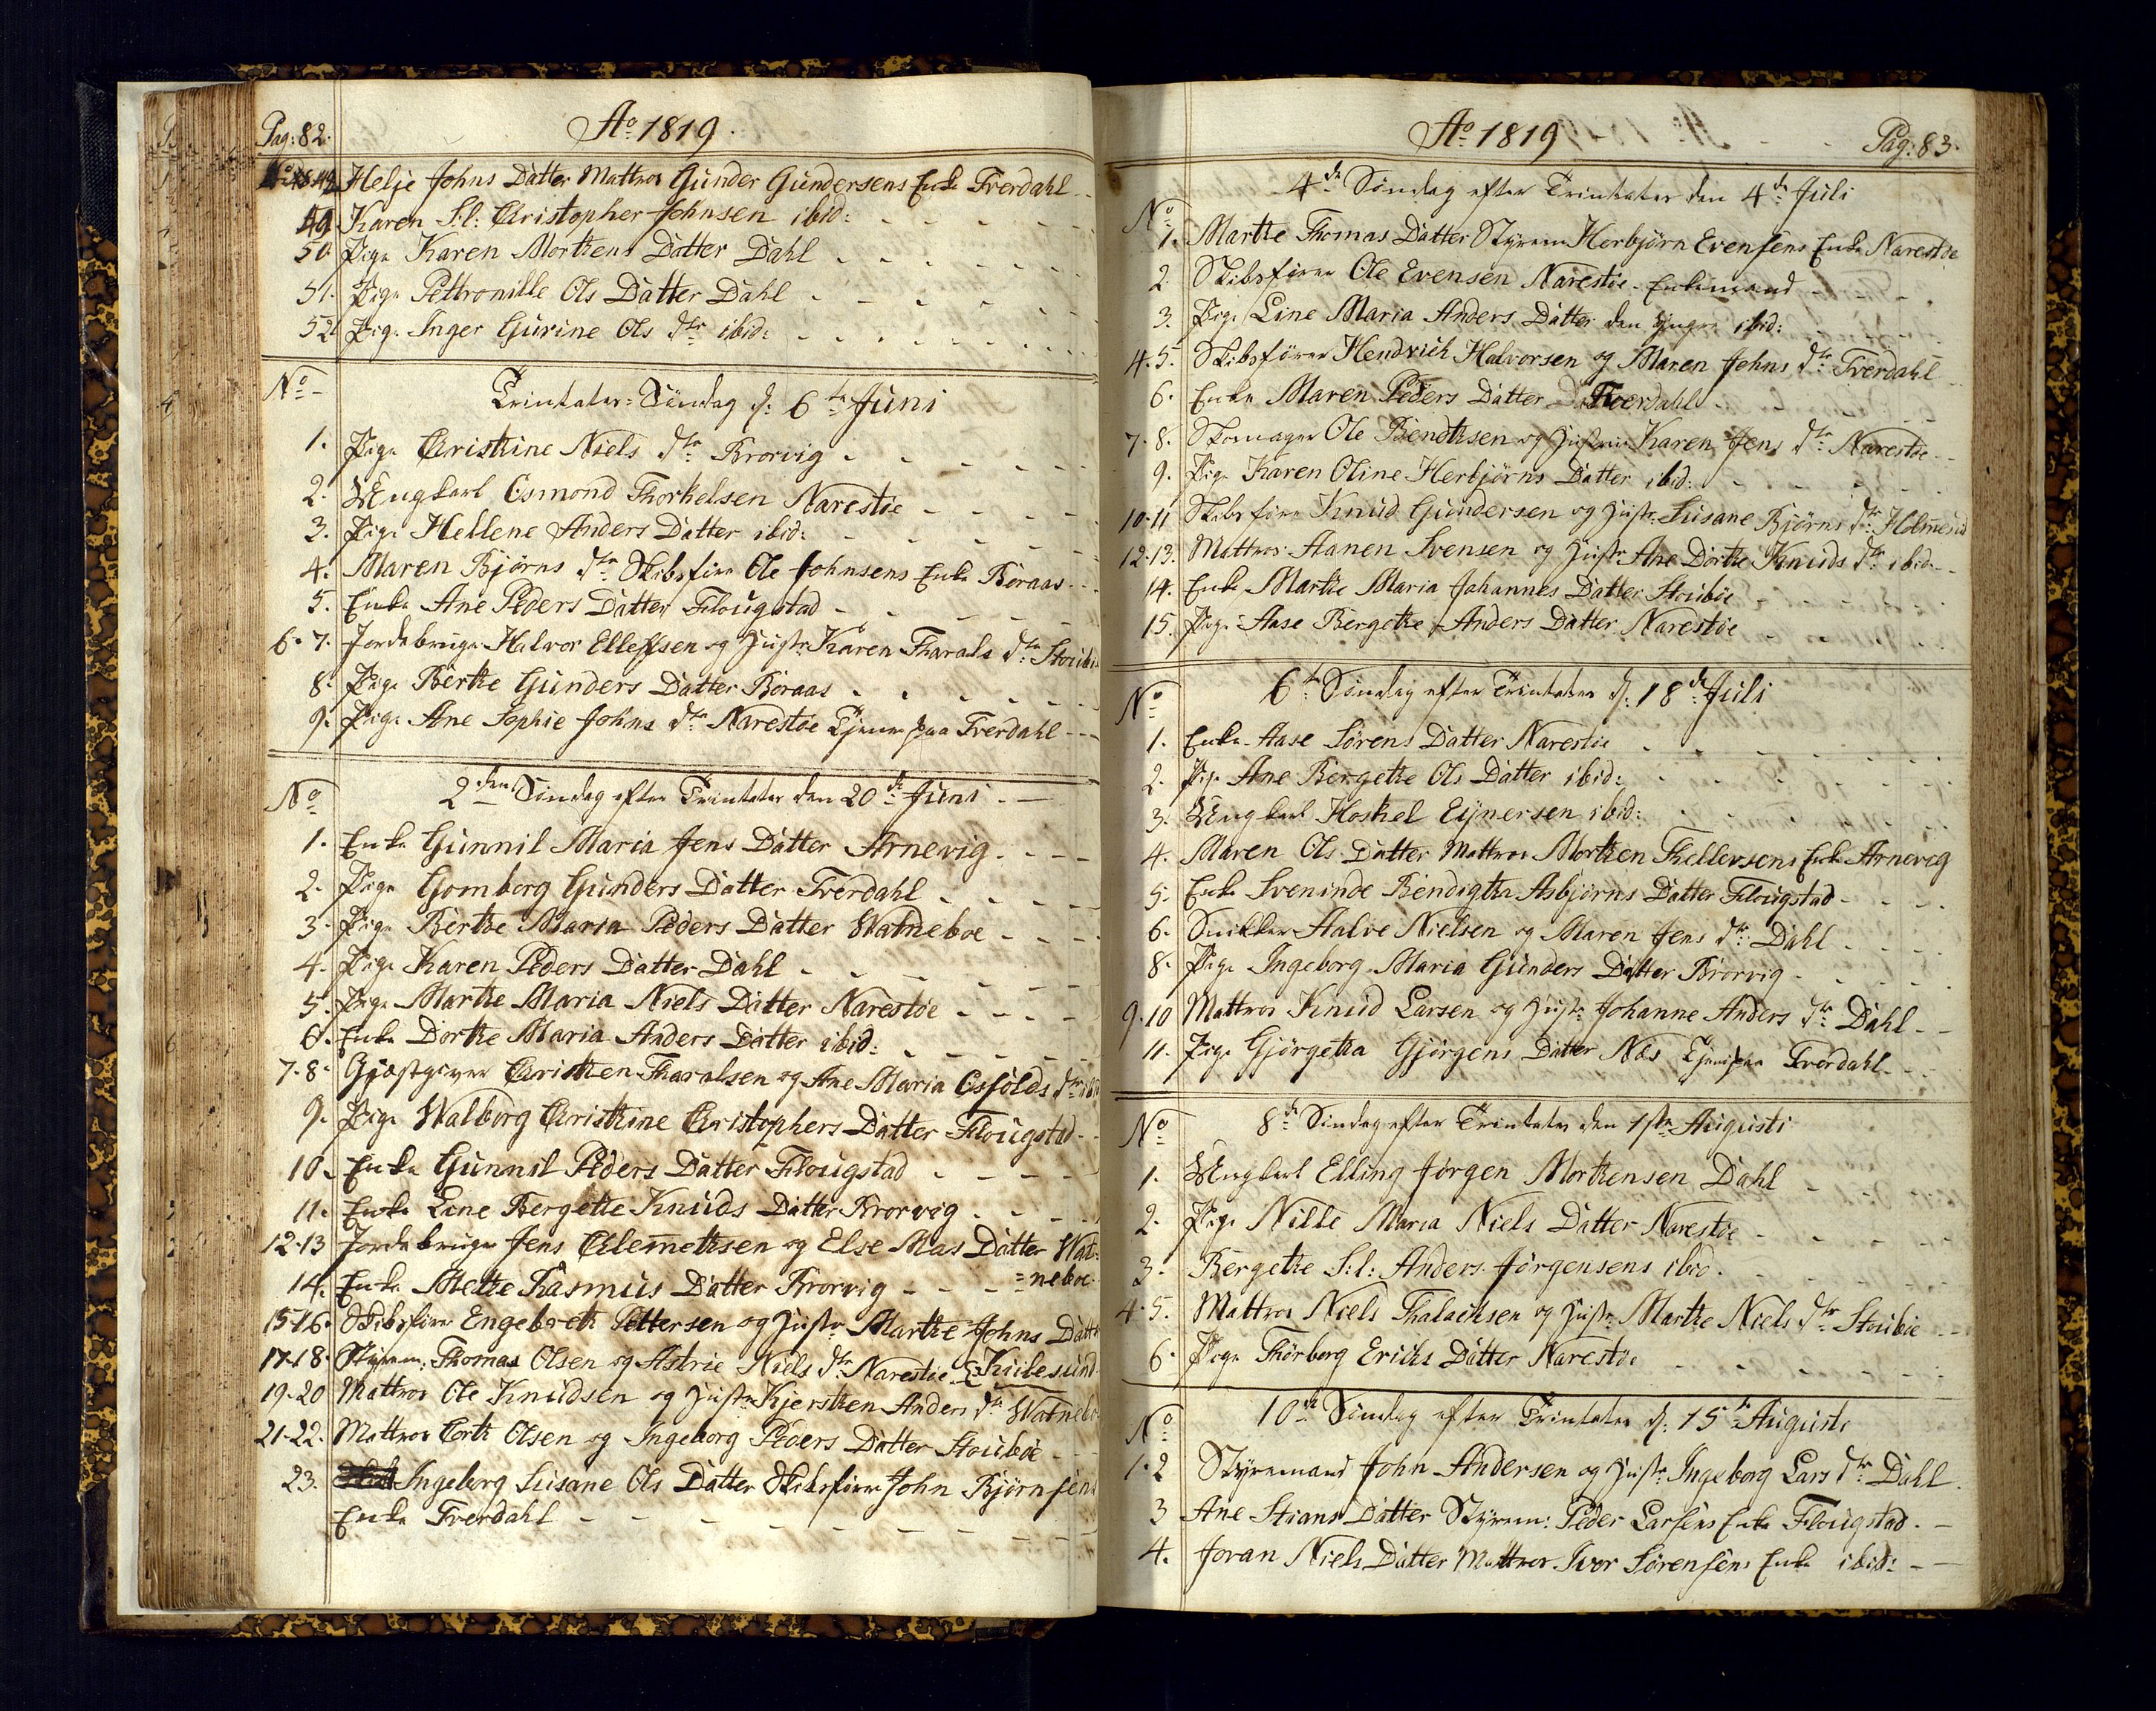 Pag: 82.
Ao 1819.
Helje Johns Datter Mattros Gunder Gundersens Enke Tverdahl
49 Karen S:l: Christopher Johnsen ibid:
50 Pige Karen Morthens Datter Dahl
51. Pige Pettronille Ols Datter Dahl
52 Pige Inger Gurine Ols dtr ibid:
No
Trinitatis Søndag d: 6te Juni
1. Pige Christine Niels dtr Brorvig
2. Ungkarl Osmond Thorkelsen Narestøe
3. Pige Hellene Anders Datter ibid:
4. Maren Bjørns dtr Skibsfører Ole Johnsens Enke Boraas
5. Enke Ane Peders Datter Flougstad
6. 7. Jordebruger Halvor Elleffsen og Hustr: Karen Tharals dtr Stoubøe
8. Pige Berthe Gunders Datter Boraas
9. Pige Ane Sophie Johns dtr Narestøe Tjener paa Tverdahl
No
2den Søndag efter Trinitatis den 20de Juni
1. Enke Gunnil Maria Jens Datter Arnevig
2. Pige Gomborg Gunders Datter Tverdahl
3. Pige Berthe Maria Peders Datter Watneboe
4. Pige Karen Peders Datter Dahl
5. Pige Marthe Maria Niels Datter Narestøe
6. Enke Dorthe Maria Anders Datter ibid:
7. 8. Gjæstgiver Christen Tharalsen og Ane Maria Osfolds dtr ibid
9. Pige Walborg Christine Christophers Datter Flougstad
10. Enke Gunnil Peders Datter Flougstad
11. Enke Lene Bergette Knuds Datter Brorvig
12. 13 Jordebruger Jens Clemethsen og Else Mas Datter Wat=
=neboe
14. Enke Mette Rasmus Datter Brorvig
15. 16. Skibsfører Engebreth Pettersen og Hustr: Marthe Johns Datter
Kuilesund
17. 18. Styrem: Thomas Olsen og Astrie Niels dtr Narestøe
19. 20 Mattros Ole Knudsen og Hustr: Kjersthen Anders dtr Watneboe
21. 22. Mattros Torth Olsen og Ingeborg Peders Datter Stoubøe
23. Ingeborg Susane Ols Datter Skibsfører John Bjørnsens
Enke Tverdahl
Ao 1819
Pag: 83.
4de Søndag efter Trinitatis den 4de Juli
No
1. Marthe Thomas Datter Styrem: Herbjørn Evensens Enke Narestøe
2. Skibsfører Ole Evensen Narestøe Enkemand
3. Pige Line Maria Anders Datter den yngre ibid:
4. 5. Skibsfører Hendrich Halvorsen og Maren Johns dtr Tverdahl
6. Enke Maren Peders Datter Tverdahl
7. 8. Skomager Ole Bendthsen og Hustrue Karen Jens dtr Narestøe
9. Pige Karen Oline Herbjørns Datter ibid:
10. 11 Skibsfører Knud Gundersen og Hustr: Susane Bjørns dtr Holmesund
12. 13. Mattros Aanen Svensen og Hustr Ane Dorthe Knuds dtr ibid
14. Enke Marthe Maria Johannes Datter Stoubøe
15. Pige Aase Bergethe Anders Datter Narestøe
No
6te Søndag efter Trinitatis d: 18de Juli
1. Enke Aase Sørens Datter Narestøe
2. Pige Ane Bergethe Ols Datter ibid:
3. Ungkarl Hoskel Eynersen ibid:
4. Maren Ols Datter Mattros Morthen Thellevsens Enke Arnevig
5. Enke Sveninde Bendigtha Asbjørns Datter Flougstad
6. Snikker Halve Nielsen og Maren Jens dtr: Dahl
8. Pige Ingeborg Maria Gunders Datter Brorvig
9. 10 Mattros Knud Larsen og Hustr: Johanne Anders dtr Dahl
11. Pige Gjørgetha Gjørgens Datter Næs Tjener paa Tverdahl
No
8de Søndag efter Trinitatis den 1ste Augusti
1. Ungkarl Elling Jørgen Morthensen Dahl
2. Pige Nille Maria Niels Datter Narestøe
3. Bergethe S:l: Anders Jørgensens ibid.
4. 5. Mattros Niels Thalachsen og Hustr: Marthe Niels dtr Stoubøe
6. Pige Thorborg Erichs Datter Narestøe
No
10de Søndag efter Trinitatis d: 15de Augusti
1. 2 Styremand John Andersen og Hustr: Ingeborg Lars dtr Dahl.
3 Ane Stians Datter Styrem: Peder Larsens Enke Flougstad.
4. Joran Niels Datter Mattros Ivor Sørensens Enke ibid: